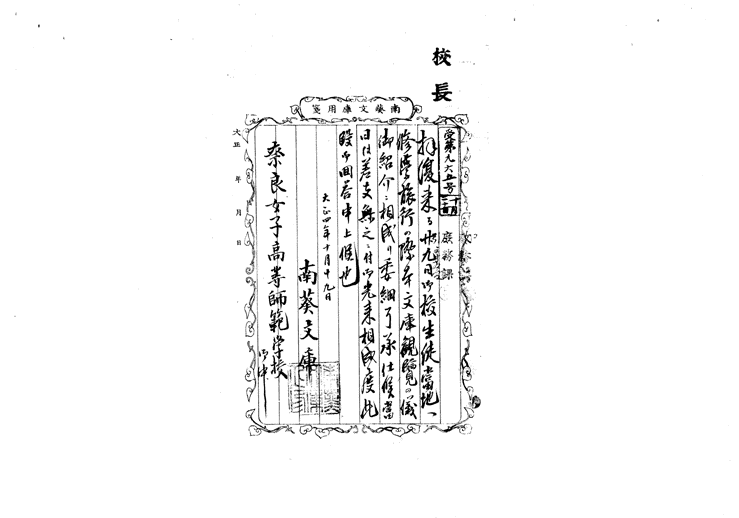 校長
南葵文庫用箋
受第九六五号
十月
庶務課
拝復来ル廿九日御校生徒當地ヘ
修學旅行ノ際本文庫観覧ノ儀
御紹介ニ相成リ委細了承仕候當
日は差支無之ニ付御光来相成度此
段御回答申上候也
大正四年十月十九日
南葵文庫
奈良女子高等師範学校
御中
大正 年 月 日